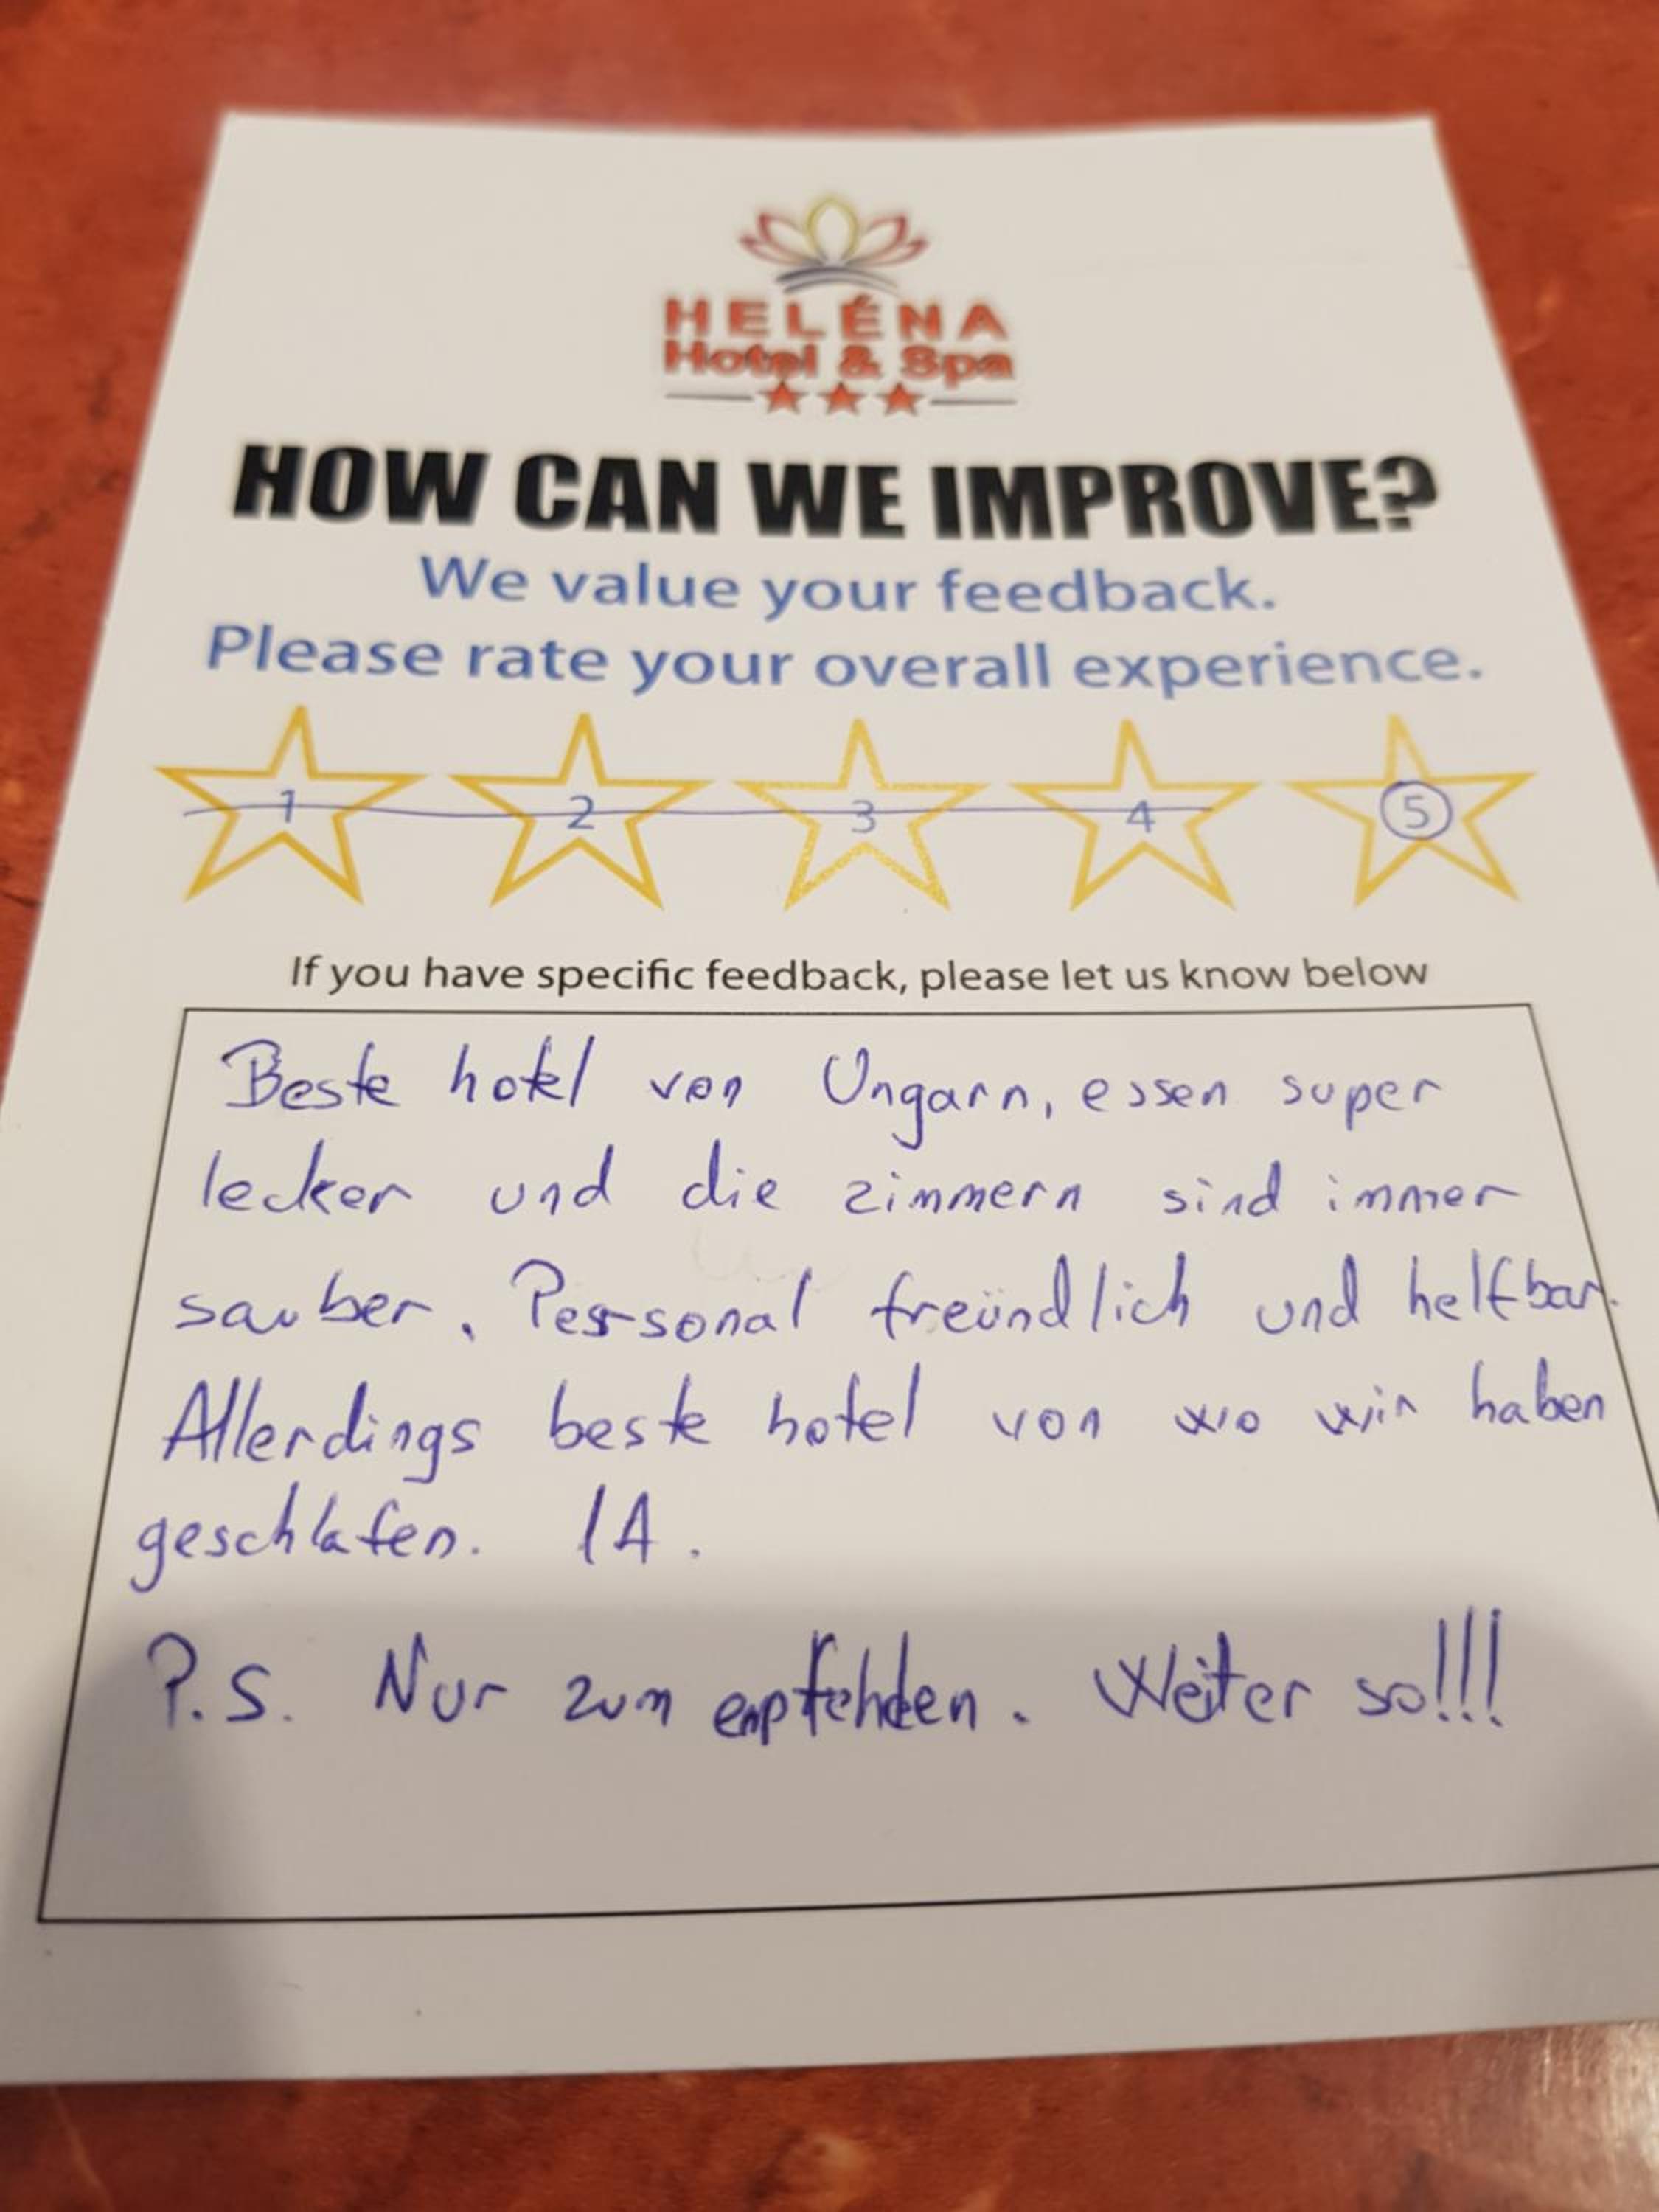 HELÉNA
Hotel & Spa
HOW CAN WE IMPROVE?
We value your feedback.
Please rate your overall experience.
1 2 3 4 5
If you have specific feedback, please let us know below
Beste hotel von Ungarn, essen super
lecker und die zimmern sind immer
sauber. Personal freündlich und helfbar.
Allerdings beste hotel von wo wir haben
geschlafen. 1A.
P.S. Nur zum empfehlen. Weiter so!!!